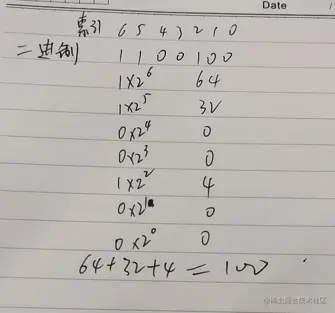 Date
索引 6 5 4 3 2 1 0
二进制 1 1 0 0 1 0 0
1×2⁶ 64
1×2⁵ 32
0×2⁴ 0
0×2³ 0
1×2² 4
0×2¹ 0
0×2⁰ 0
64+32+4=100
@稀土掘金技术社区